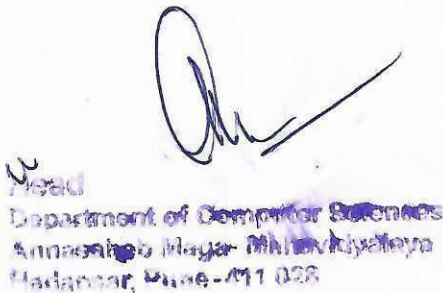 Head
Department of Computer Sciences
Annasaheb Magar Mahavidyalaya
Hadapsar, Pune-411 028